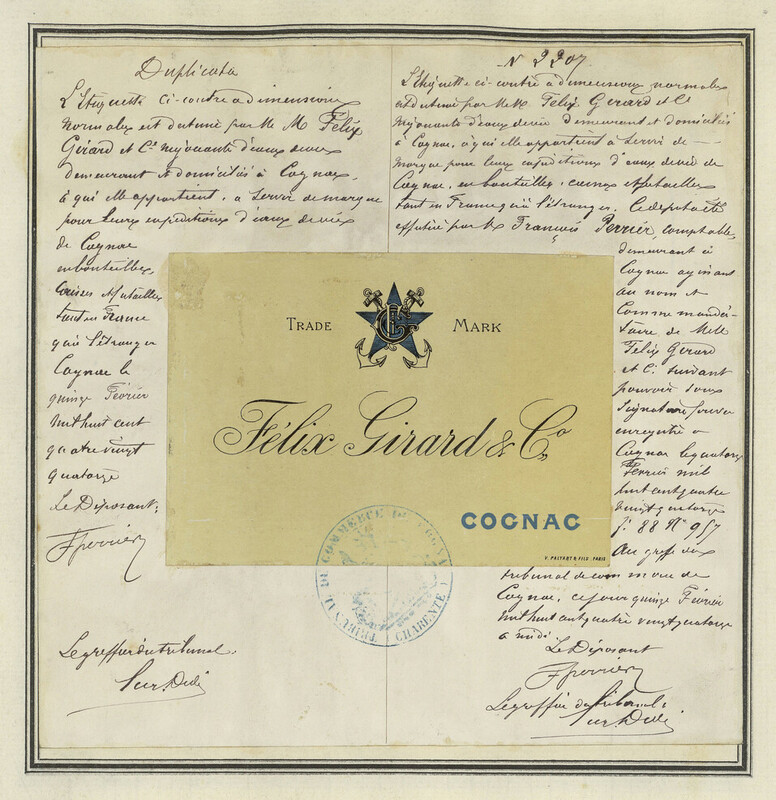 Duplicata
L'Etiquette ci-contre a dimensions
normales est destiné par Mr M Félix
Girard et Cie négociants d'eaux de vie
demeurant et domiciliés à Cognac,
à qui elle appartient, à servir de marque
pour leurs expéditions d'eaux de vie
de Cognac
en bouteilles,
caisses et futailles
tant en France
qu'à l'étranger
Cognac le
quinze Février
mil huit cent
quatre vingt
quatorze
Le Déposant;
FPerrier
Le greffier du tribunal.
N 2207
L'Etiquette ci-contre à dimensions normales
est destiné par MM. Félix Gérard et Cie
négociants d'eaux de vie demeurant et domiciliés
à Cognac, à qui elle appartient à servir de
marque pour leurs expéditions d'eaux de vie de
Cognac, en bouteilles, caisses et futailles
tant en France qu'à l'étranger. Ce dépôt a été
effectué par Mr François Perrier, comptable,
demeurant à
Cognac agissant
au nom et
comme manda-
taire de MM
Félix Gérard
et Cie suivant
pouvoir sous
signature privée
enregistré à
Cognac le quatorze
Février mil
huit cent quatre
vingt quatorze
f° 88 N° 957
Au greffe du
tribunal de commerce de
Cognac, ce jour quinze Février
mil huit cent quatre vingt quatorze
à midi
Le Déposant
FPerrier
Le greffier du tribunal
TRADE MARK
Félix Girard & Co
COGNAC
V. PALYART & FILS. PARIS
TRIBUNAL DE COMMERCE DE COGNAC
(CHARENTE)